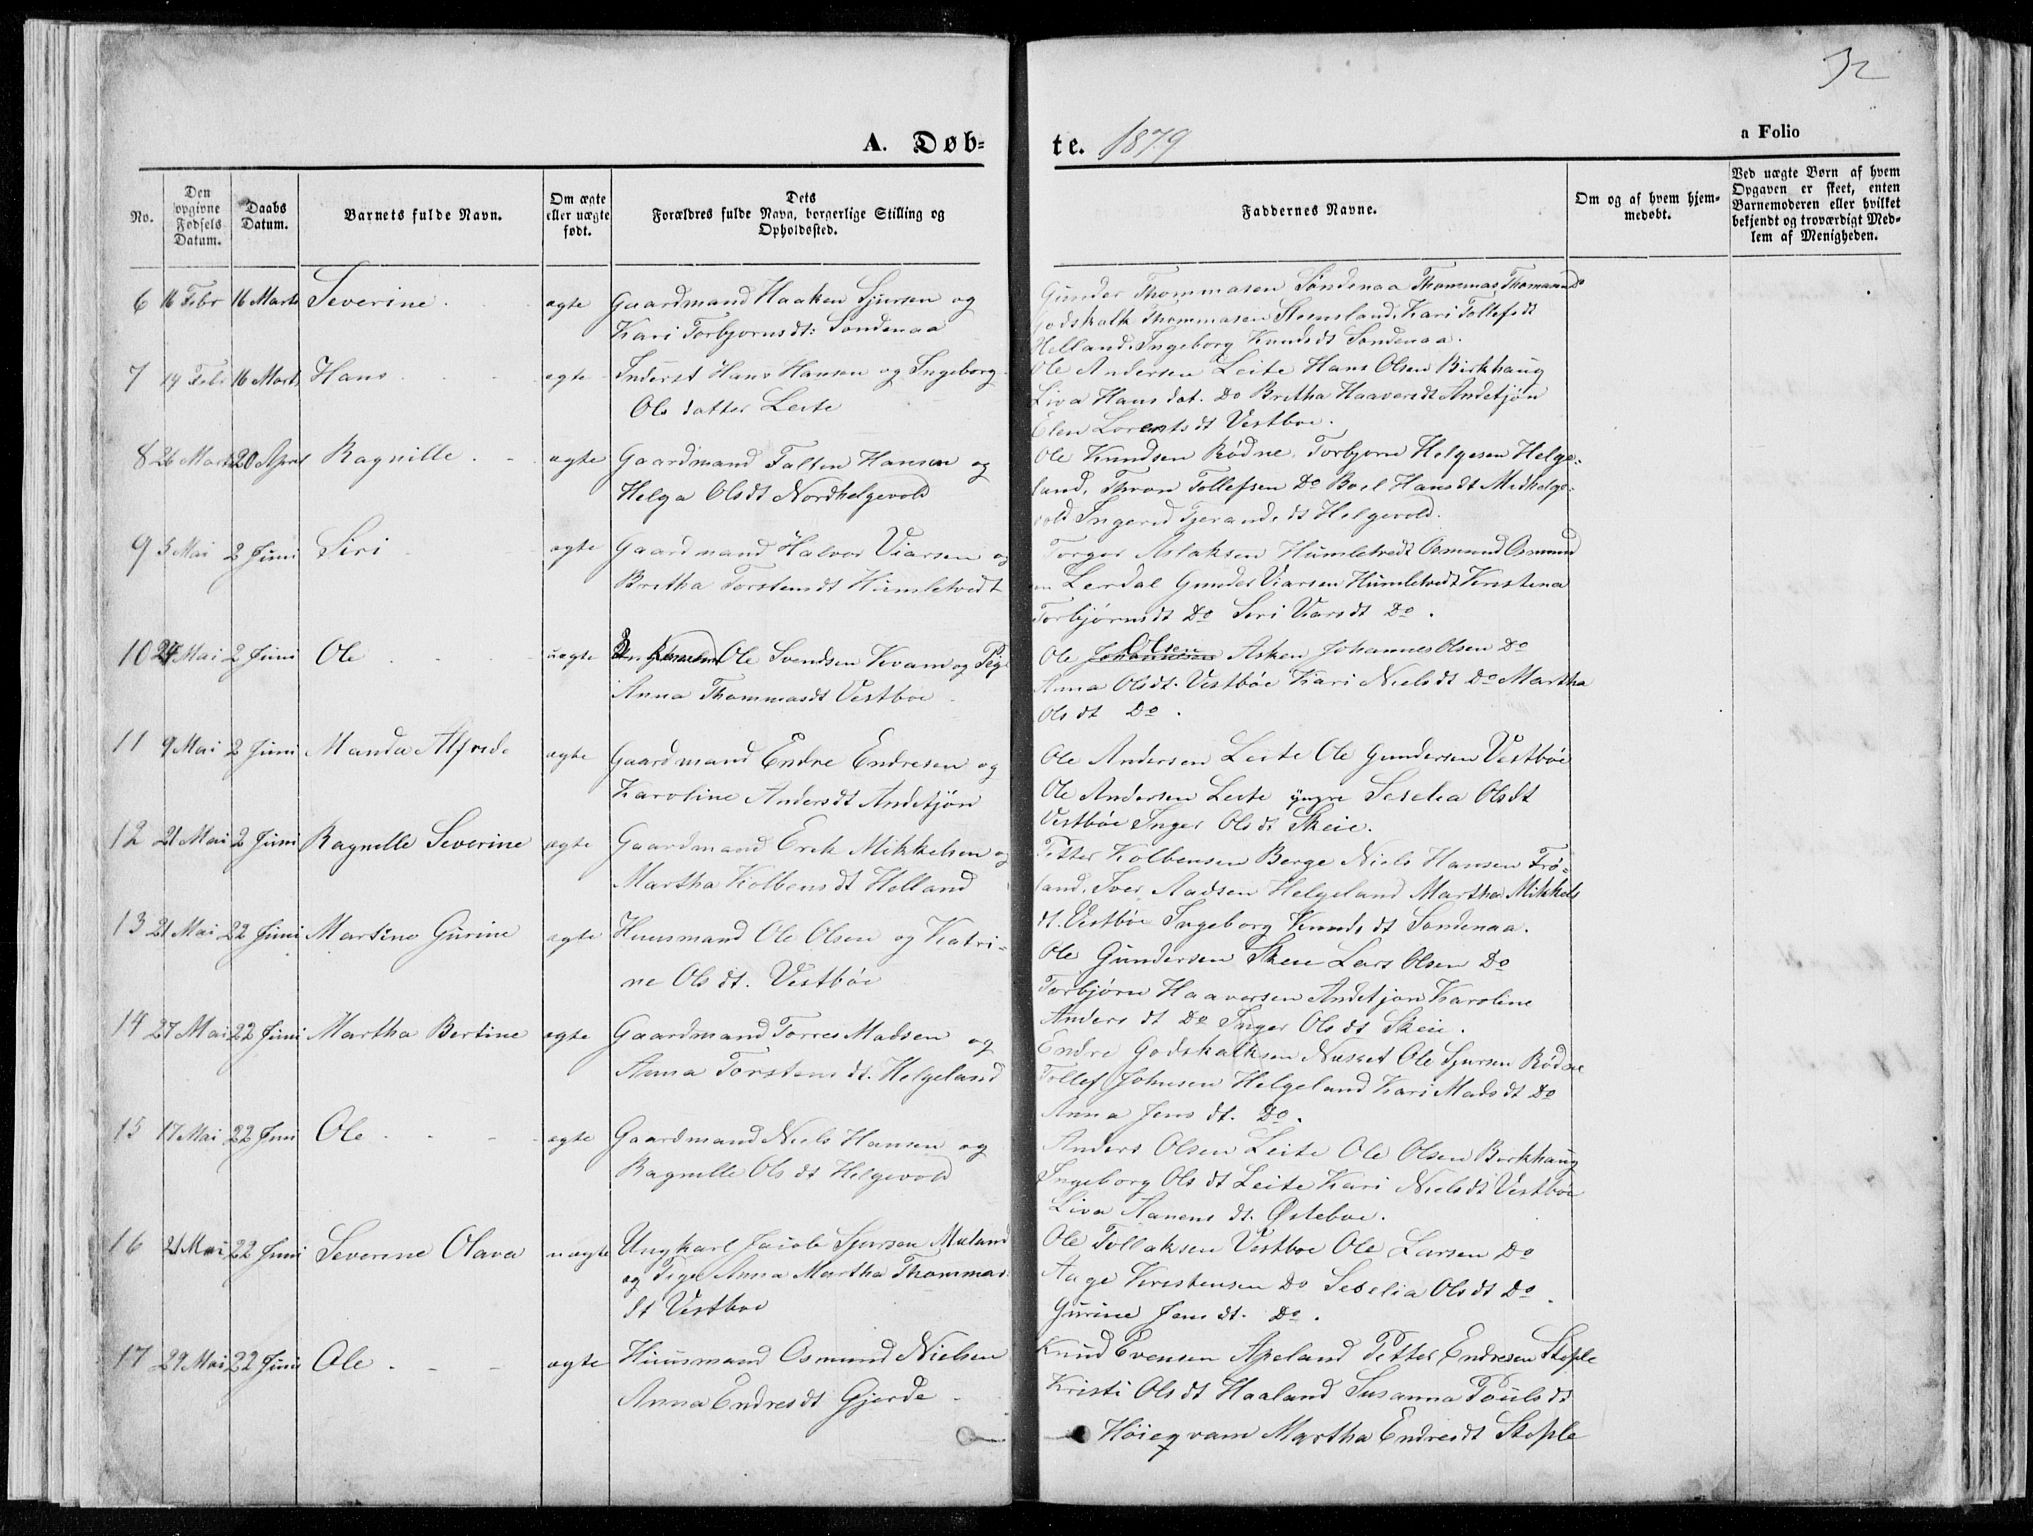 32
A. Døb=
te. 1879
a Folio
No.
Den opgivne Fødsels Datum.
Daabs Datum.
Barnets fulde Navn.
Om ægte eller uægte født.
Dets Forældres fulde Navn, borgerlige Stilling og Opholdssted.
Faddernes Navne.
Om og af hvem hjemmedøbt.
Ved uægte Børn af hvem Opgaven er skeet, enten Barnemoderen eller hvilket bekjendt og troværdigt Medlem af Menigheden.
6 16 Febr 16 Marts Severine ægte Gaardmand Haaken Sjursen og
Kari Torbjornsdt: Søndenaa
Gunder Thommasen Søndenaa Thommas Thomasen Do
Godskalk Thommasen Stemsland, Kari Tollefsdt
Helland. Ingeborg Knudsdt Søndenaa.
7 14 Febr 16 Marts Hans ægte Inderst Hans Hansen og Ingeborg
Olsdatter Leite
Ole Andersen Leite Hans Olsen Birkhaug
Liva Hansdat. Do Bretha Haaversdt Andetjøn
Elen Lorentsdt Vestboe.
8 26 Marts 20 April Ragnille ægte Gaardmand Falten Hansen og
Helga Olsdt Nordhelgevold
Ole Knudsen Rødne. Torbjorn Helgesen Helge-
land, Thron Tollefsen Do Boel Hansdt Medhelge-
vold Ingered Tjerandsdt Helgevold.
9 3 Mai 2 Juni Siri ægte Gaardmand Halvor Viarsen og
Bretha Torstensdt Humletvedt
Torger Aslaksen Humletvedt Osmund Osmund
en Lerdal Gunder Viarsen Humletvedt Kristena
Torbjørnsdt Do Seri Viarsdt Do.
10 24 Mai 2 Juni Ole uægte Ole Svendsen Kvam og Pig
Anna Thommasdt Vestboe
Ole Olsen Asken Johannes Olsen Do
Anna Olsdt. Vestbøe Kari Nielsdt Do Martha
Olsdt Do.
11 9 Mai 2 Juni Manda Alfrede ægte Gaardmand Endre Endresen og
Karoline Andersdt Andetjøn
Ole Andersen Leite Ole Gundersen Vestbøe
Ole Andersen Leite yngre Seselia Olsdt
Vestbøe Inger Olsdt Skeie.
12 21 Mai 2 Juni Ragnelle Severine ægte Gaardmand Erek Mikkelsen og
Martha Kolbensdt Helland
Petter Kolbensen Berge Niels Hansen Frø-
land. Iver Aadsen Helgeland Martha Mikkels
dt. Vestbøe Ingeborg Knudsdt Søndenaa.
13 21 Mai 22 Juni Martine Gurine ægte Huusmand Ole Olsen og Katri-
ne Olsdt. Vestbøe
Ole Gundersen Skeie Lars Olsen Do
Torbjørn Haaversen Andetjøn Karoline
Andersdt Do Inger Olsdt Skeie.
14 27 Mai 22 Juni Martha Bertine ægte Gaardmand Torres Madsen og
Anna Torstensdt. Helgeland
Endre Godskalksen Ole Sjursen Rødne
Tollef Johnsen Helgeland Kari Madsdt Do
Anna Jensdt. Do.
15 17 Mai 22 Juni Ole ægte Gaardmand Niels Hansen og
Ragnelle Olsdt Helgevold
Anders Olsen Leite Ole Olsen Berkhaug
Ingeborg Olsdt Leite Kari Nielsdt Vestbøe
Liva Hanensdt. Østeboe.
16 21 Mai 22 Juni Severine Olava uægte Ungkarl Jacob Sjursen Mæland
og Pige Anna Martha Thommas
dt Vestboe
Ole Tollaksen Vestboe Ole Larsen Do
Aage Kristensen Do Seselia Olsdt Do
Gurine Jensdt. Do.
17 29 Mai 22 Juni Ole ægte Huusmand Osmund Nielsen
Anna Endresdt Gjerde
Knud Evensen Apeland Petter Endresen Stople
Kristi Olsdt Haaland Susanna Poulsdt
Høiegvam Martha Endresdt Stople